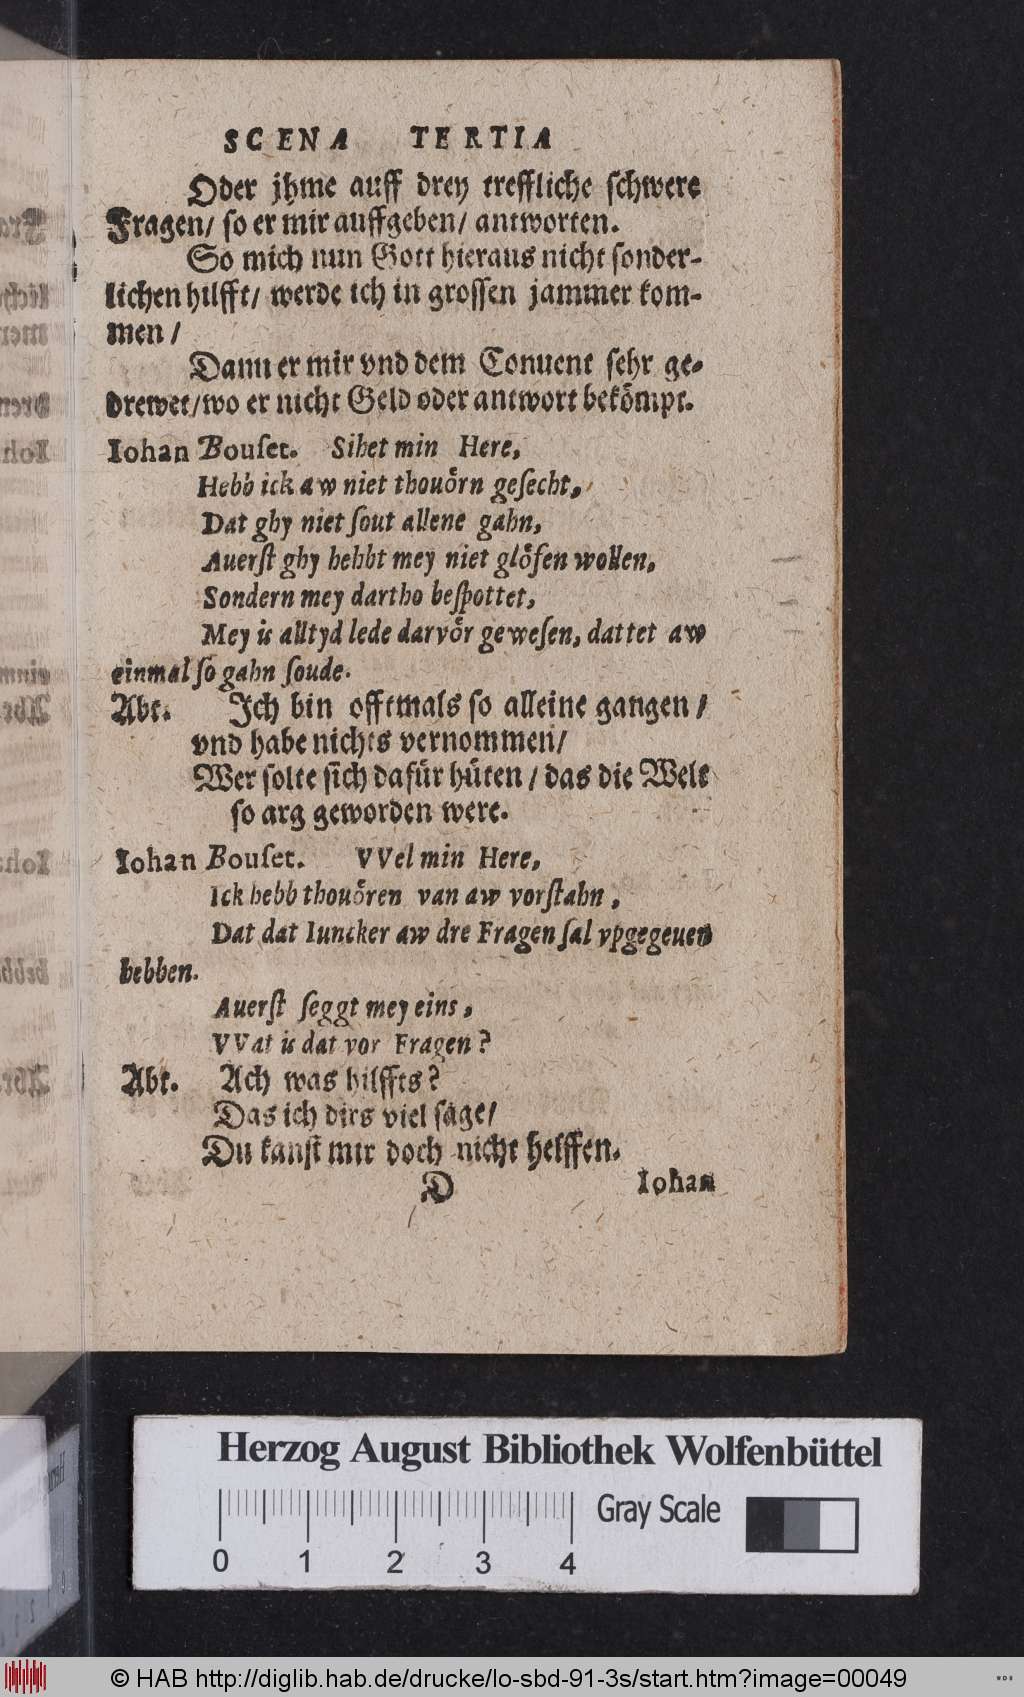 SCENA TERTIA
Oder jhme auff drey treffliche schwere
Fragen/ so er mir auffgeben/ antworten.
So mich nun Gott hieraus nicht sonder-
lichen hilfft/ werde ich in grossen jammer kom-
men /
Dann er mir vnd dem Conuent sehr ge-
drewet/wo er nicht Geld oder antwort bekömpt.
Iohan Bouſet. Sihet min Here,
Hebb ick aw niet thouörn geſecht,
Dat ghy niet ſout allene gahn,
Auerſt ghy hebbt mey niet glöfen wollen,
Sondern mey dartho beſpottet,
Mey is alltyd lede darvör geweſen, dattet aw
einmal ſo gahn ſoude.
Abt. Jch bin offtmals so alleine gangen /
vnd habe nichts vernommen/
Wer solte sich dafür hüten / das die Welt
so arg geworden were.
Iohan Bouſet. VVel min Here,
Ick hebb thouören van aw vorſtahn ,
Dat dat Iuncker aw dre Fragen ſal vpgegeuen
hebben.
Auerſt ſeggt mey eins ,
VVat is dat vor Fragen ?
Abt. Ach was hilffts?
Das ich dirs viel sage/
Du kanst mir doch nicht helffen.
D Iohan
Herzog August Bibliothek Wolfenbüttel
Gray Scale
0 1 2 3 4
© HAB http://diglib.hab.de/drucke/lo-sbd-91-3s/start.htm?image=00049